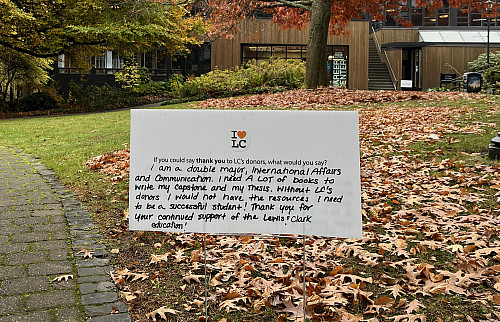 I 🧡
LC
If you could say thank you to LC's donors, what would you say?
I am a double major, International Affairs
and Communication. I need A LOT of books to
write my capstone and my thesis. Without LC's
donors I would not have the resources I need
to be a successful student! Thank you for
your continued support of the Lewis & Clark
education!
CAREER
CENTER